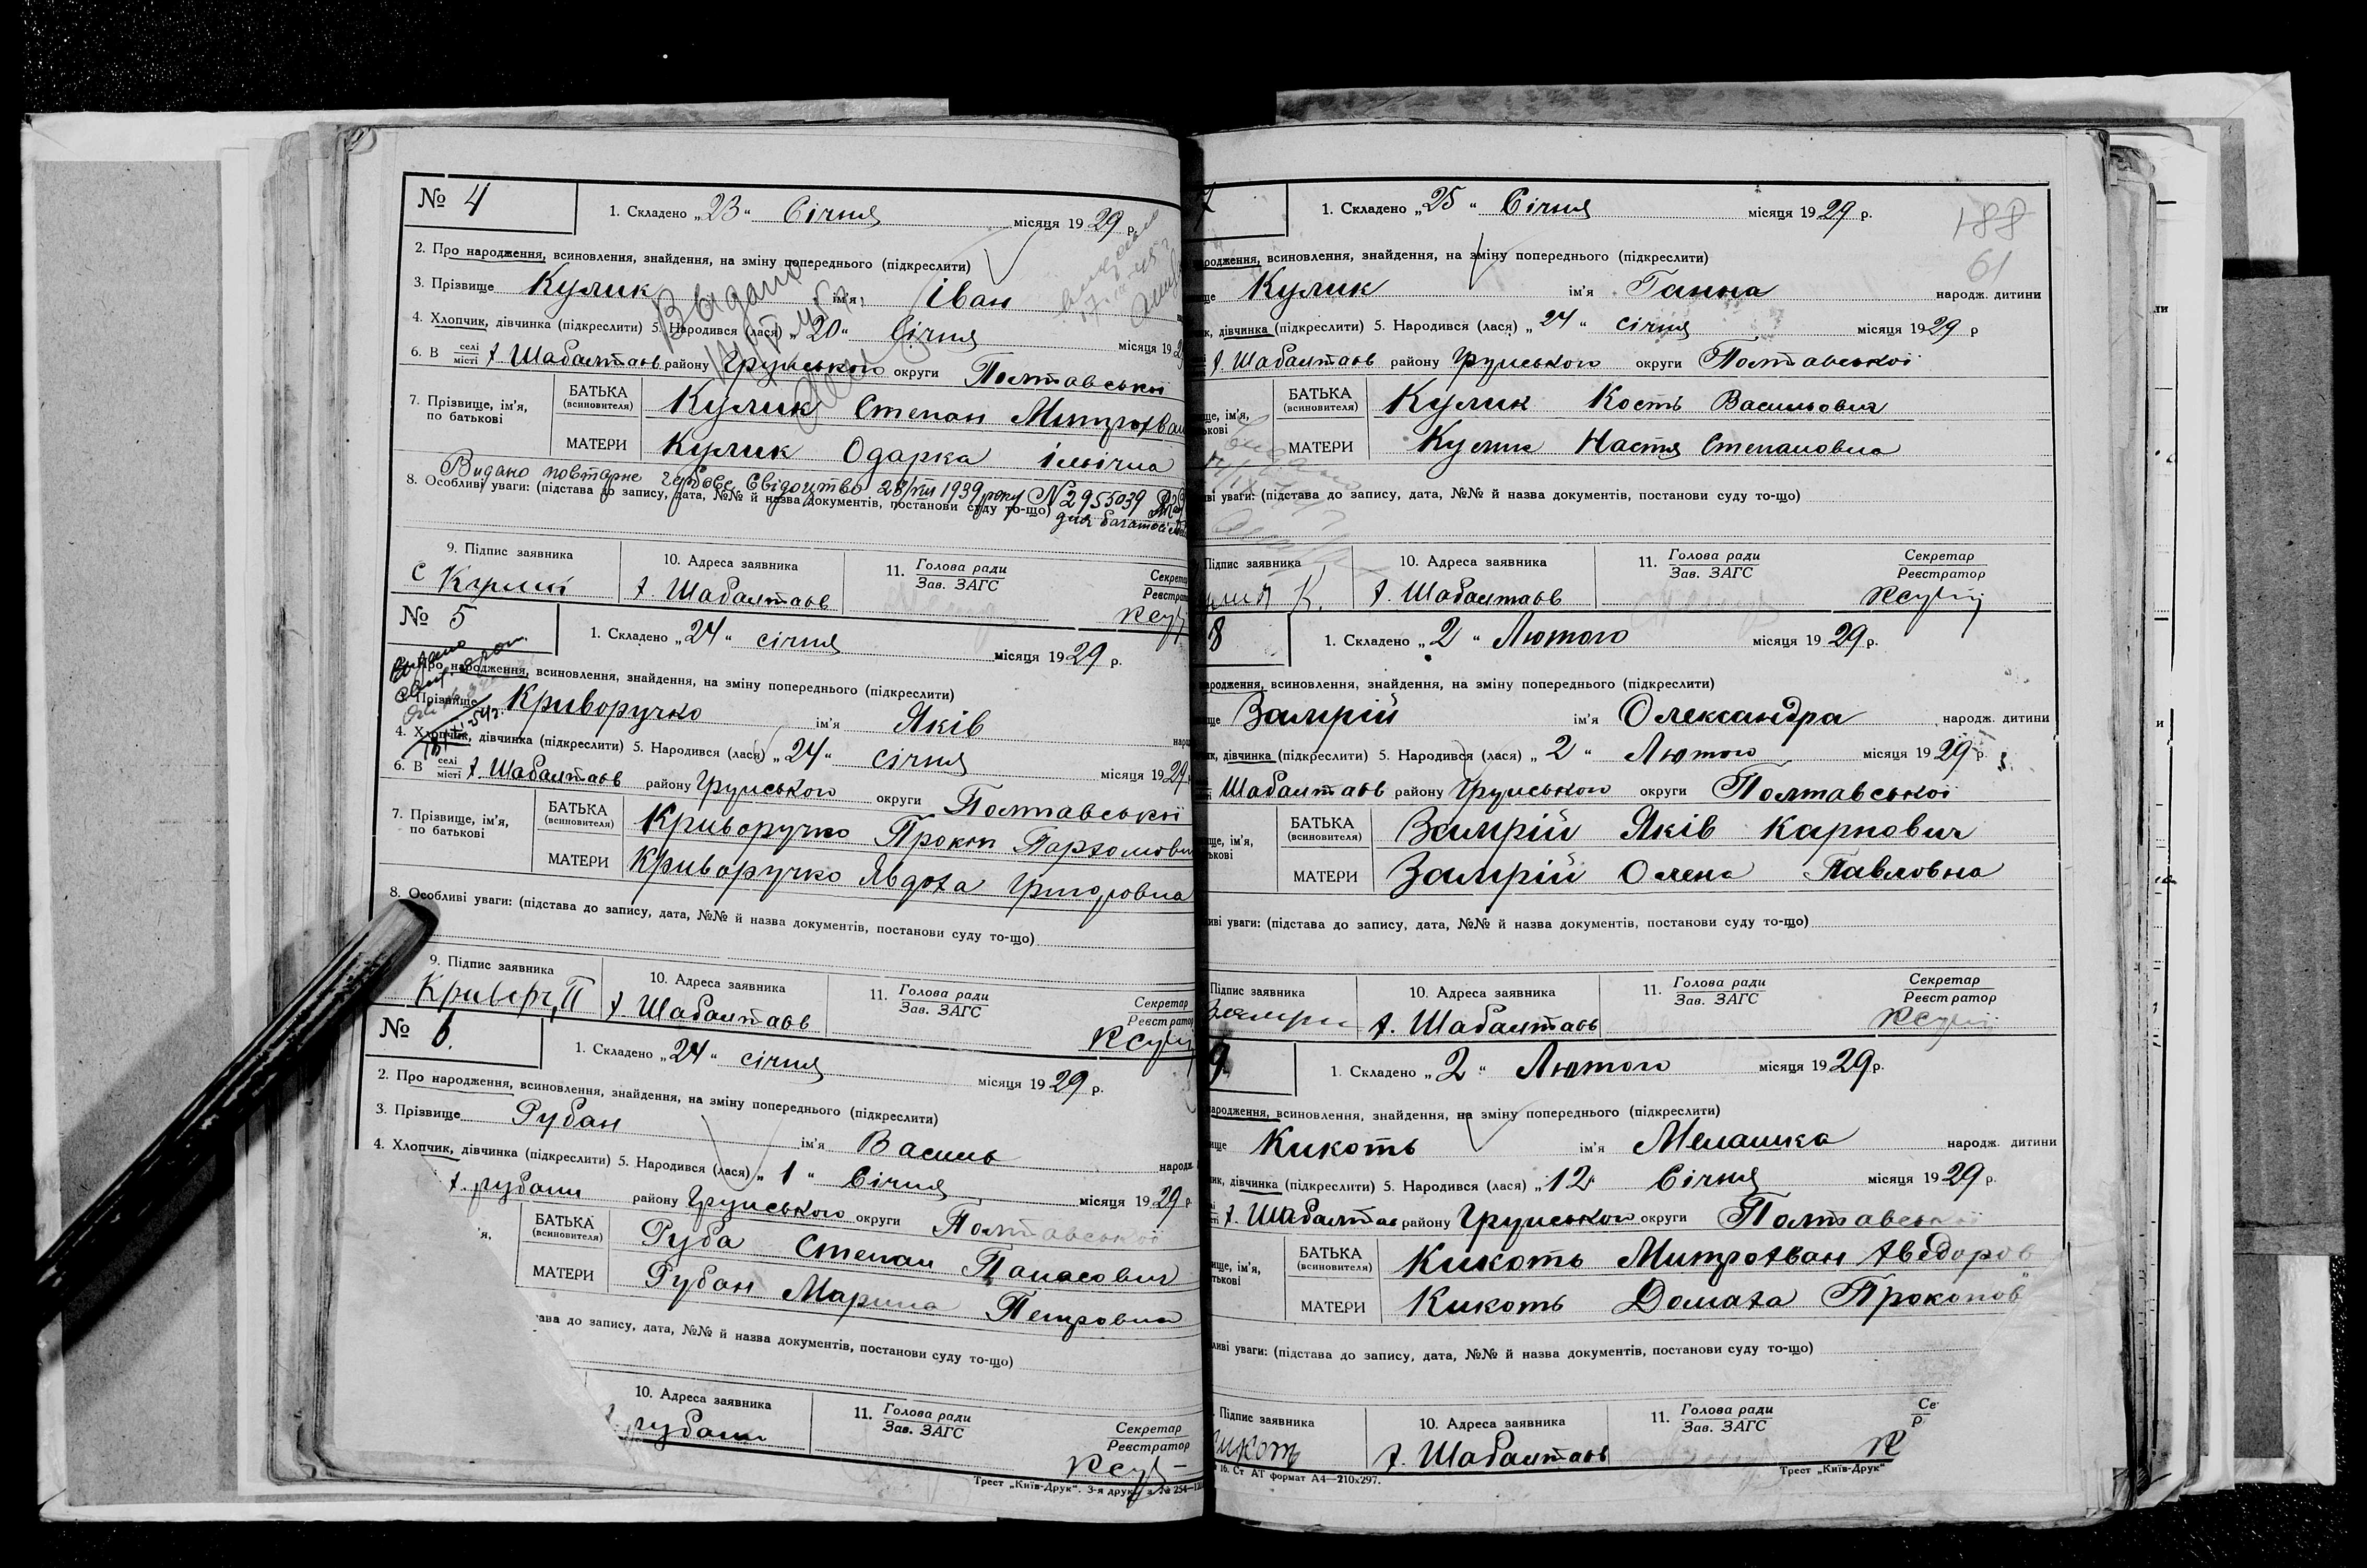 № 4
1. Складено „23“ Січня місяця 1929 р.
2. Про народження, всиновлення, знайдення, на зміну попереднього (підкреслити)
3. Прізвище Кулик ім'я Іван
4. Хлопчик, дівчинка (підкреслити) 5. Народився (лася) „20“ Січня місяця 192
6. В селі місті х. Шабалтаєв району Грунського округи Полтавської
7. Прізвище, ім'я, по батькові
БАТЬКА (всиновителя) Кулик Степан Митрохван
МАТЕРИ Кулик Одарка Ільїчна
Видано повторне Свідоцтво 28/VII 1939 року № 2955039
8. Особливі уваги: (підстава до запису, дата, №№ й назва документів, постанови суду то-що)
9. Підпис заявника 10. Адреса заявника 11. Голова ради Зав. ЗАГС Секретар Реєстрат
С Кулик х. Шабалтаєв
№ 5
1. Складено „24“ січня місяця 1929 р.
Видано
2. Про народження, всиновлення, знайдення, на зміну попереднього (підкреслити)
3. Прізвище Криворучко ім'я Яків
4. Хлопчик, дівчинка (підкреслити) 5. Народився (лася) „24“ січня місяця 1929
6. В селі місті х. Шабалтаєв району Грунського округи Полтавської
7. Прізвище, ім'я, по батькові
БАТЬКА (всиновителя) Криворучко Прокіп Пархомови
МАТЕРИ Криворучко Явдоха Григоровна
8. Особливі уваги: (підстава до запису, дата, №№ й назва документів, постанови суду то-що)
9. Підпис заявника 10. Адреса заявника 11. Голова ради Зав. ЗАГС Секретар Реєстратор
х. Шабалтаєв
№ 6.
1. Складено „24“ січня місяця 1929 р.
2. Про народження, всиновлення, знайдення, на зміну попереднього (підкреслити)
3. Прізвище Рубан ім'я Василь народж.
4. Хлопчик, дівчинка (підкреслити) 5. Народився (лася) „1“ Січня місяця 1929 р
х. рубани району Грунського округи Полтавської
'я,
БАТЬКА (всиновителя) Руба Степан Панасович
МАТЕРИ Рубан Марина Петровна
ава до запису, дата, №№ й назва документів, постанови суду то-що)
10. Адреса заявника 11. Голова ради Зав. ЗАГС Секретар Реєстратор
х. рубани
Трест „Київ-Друк“. 3-я друк. з. № 254—
188
61
1. Складено „25“ Січня місяця 1929 р.
народження, всиновлення, знайдення, на зміну попереднього (підкреслити)
ще Кулик ім'я Ганна народж. дитини
к, дівчинка (підкреслити) 5. Народився (лася) „24“ січня місяця 1929 р
х. Шабалтаєв району Грунського округи Полтавської
ще, ім'я, ькові
БАТЬКА (всиновителя) Кулик Кость Васильович
МАТЕРИ Кулик Настя Степановна
ві уваги: (підстава до запису, дата, №№ й назва документів, постанови суду то-що)
Підпис заявника 10. Адреса заявника 11. Голова ради Зав. ЗАГС Секретар Реєстратор
К. х. Шабалтаєв
8
1. Складено „2“ Лютого місяця 1929 р.
народження, всиновлення, знайдення, на зміну попереднього (підкреслити)
ще Замрій ім'я Олександра народж. дитини
ик, дівчинка (підкреслити) 5. Народився (лася) „2“ Лютого місяця 1929 р.
Шабалтаєв району Грунського округи Полтавської
ще, ім'я, ькові
БАТЬКА (всиновителя) Замрій Яків Карпович
МАТЕРИ Замрій Олена Павловна
иві уваги: (підстава до запису, дата, №№ й назва документів, постанови суду то-що)
Підпис заявника 10. Адреса заявника 11. Голова ради Зав. ЗАГС Секретар Реєстратор
х. Шабалтаєв
9
1. Складено „2“ Лютого місяця 1929 р.
народження, всиновлення, знайдення, на зміну попереднього (підкреслити)
ище Кикоть ім'я Мелашка народж. дитини
ик, дівчинка (підкреслити) 5. Народився (лася) „12“ Січня місяця 1929 р.
х. Шабалтаєв району Грунського округи Полтавської
ище, ім'я, тькові
БАТЬКА (всиновителя) Кикоть Митрохван Хведоров
МАТЕРИ Кикоть Домаха Прокопов
ливі уваги: (підстава до запису, дата, №№ й назва документів, постанови суду то-що)
Підпис заявника 10. Адреса заявника 11. Голова ради Зав. ЗАГС Се Р
икоть х. Шабалтаєв
16. Ст АТ формат А4—210х297. Трест „Київ-Друк“